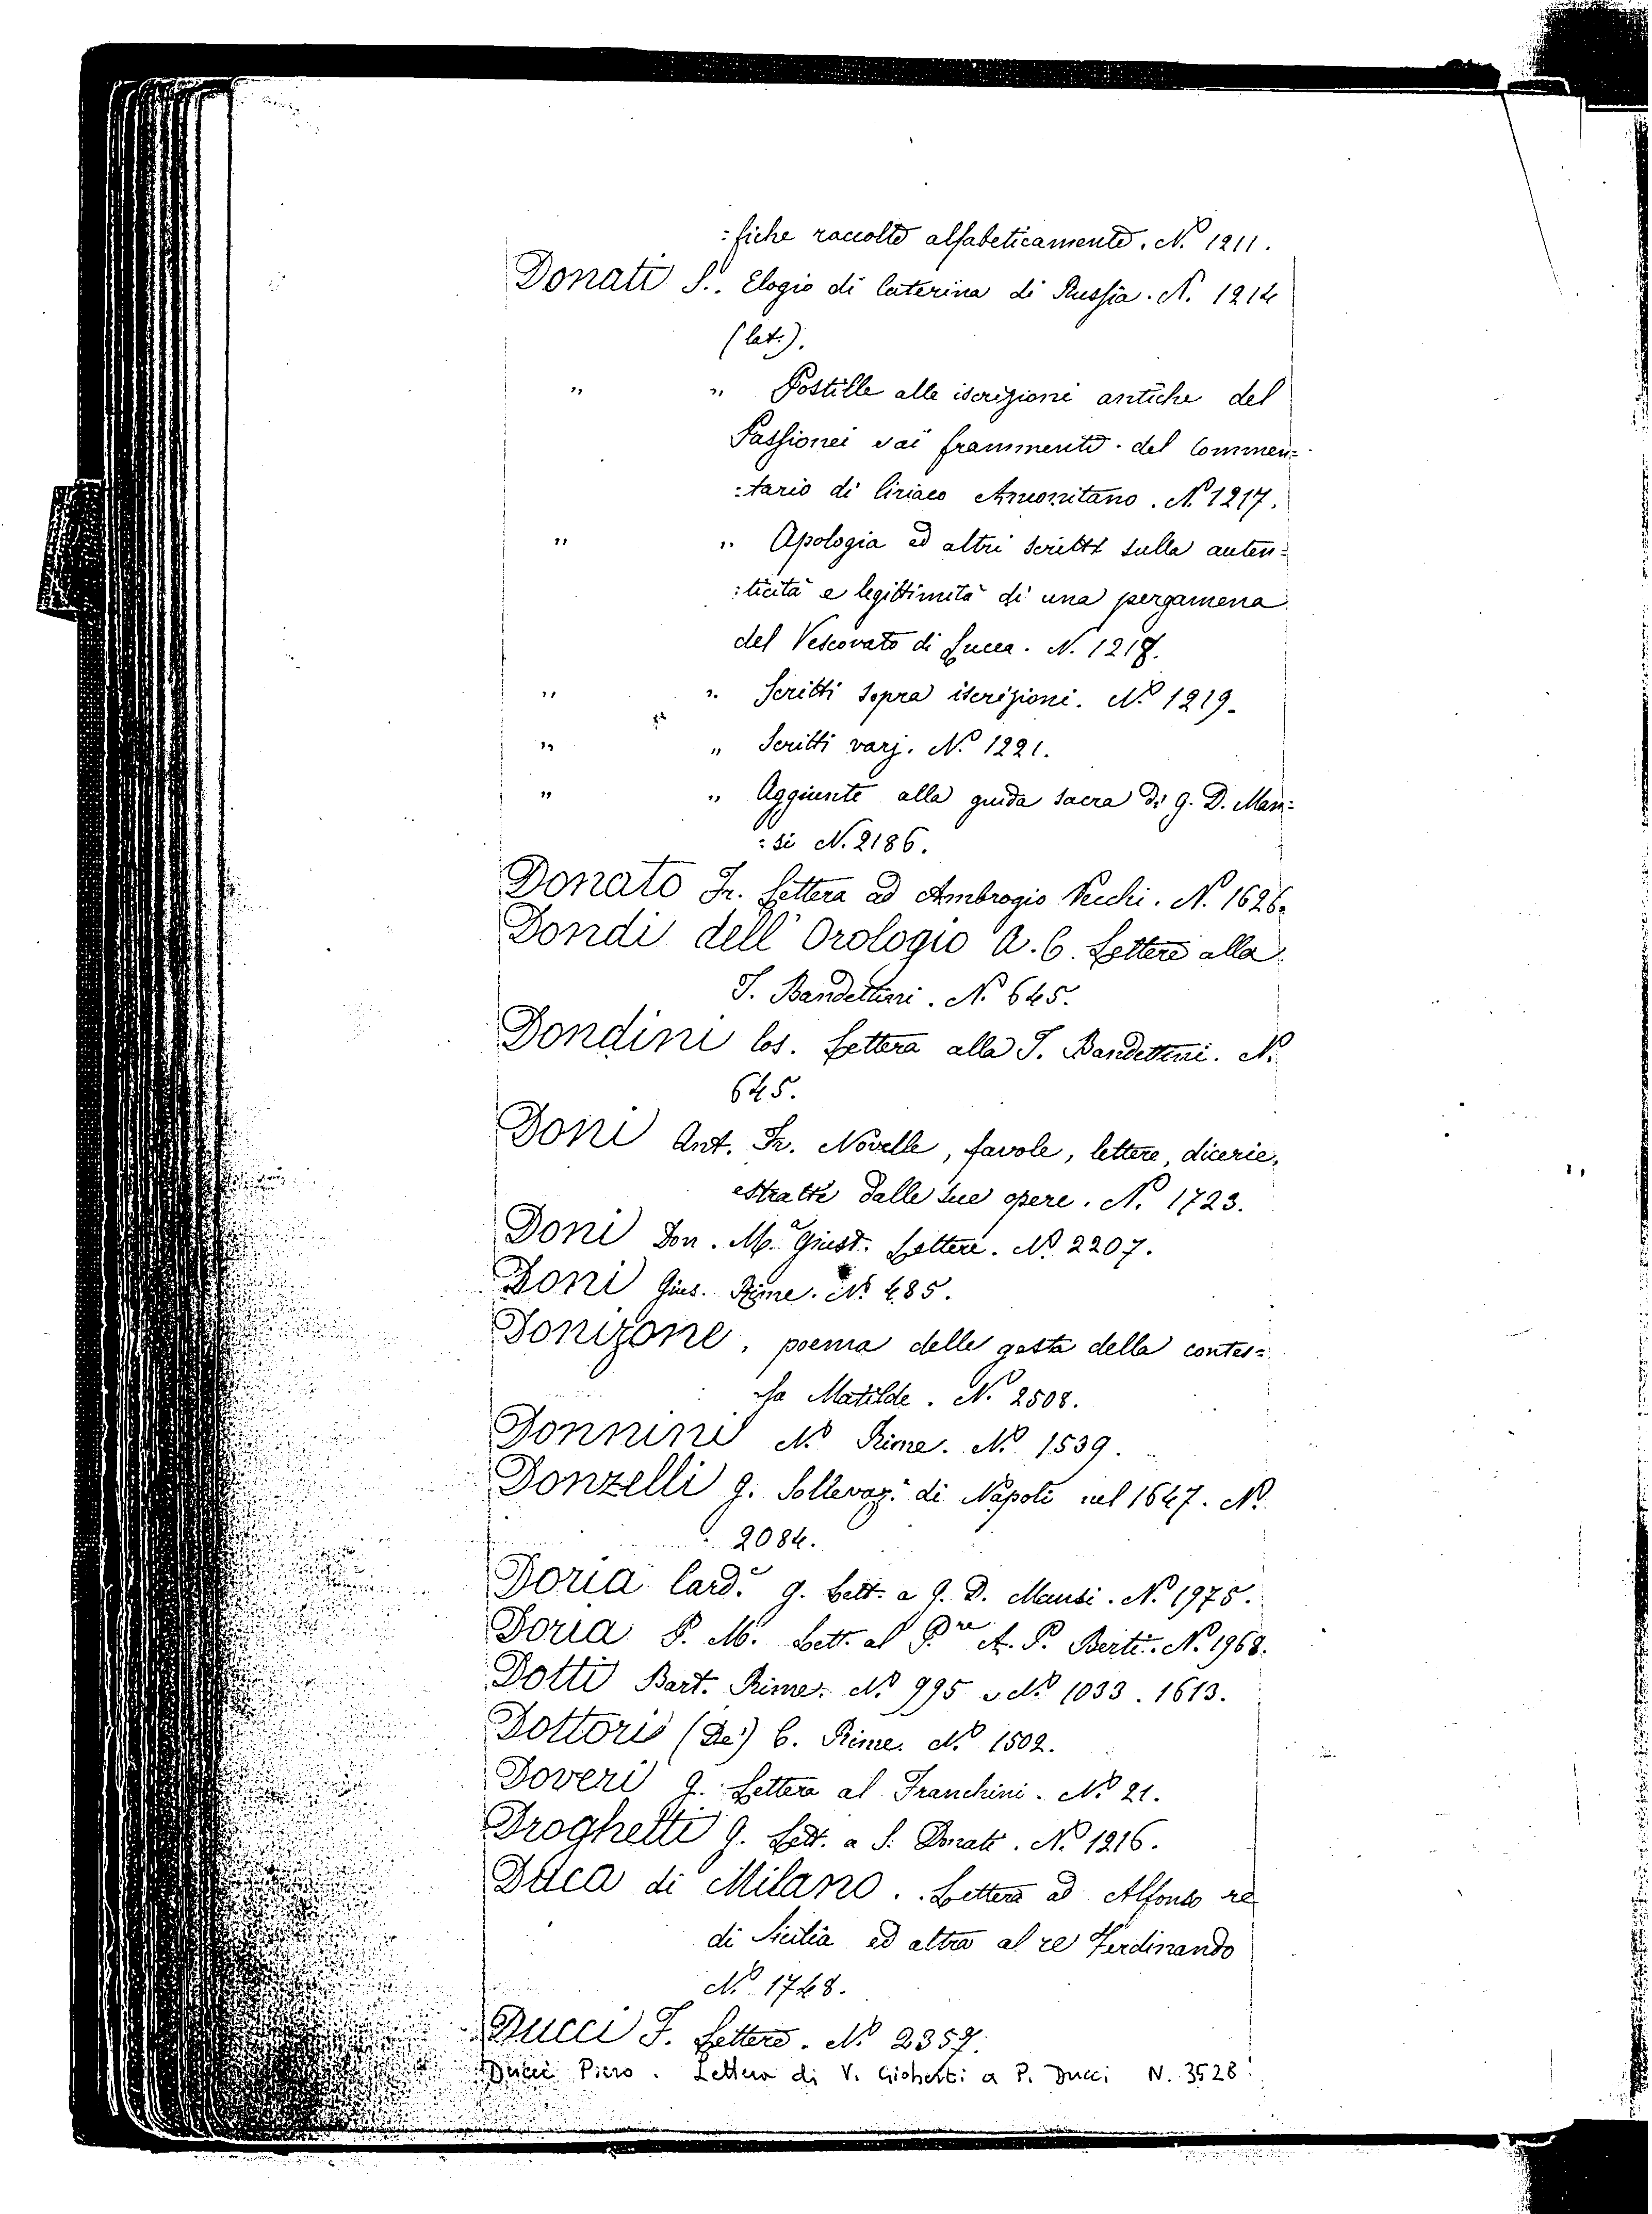 :fiche raccolte alfabeticamente. N. 1211.
Donati S.. Elogio di Caterina di Russia. N. 1214
(lat.).
" " Postille alle iscrizioni antiche del
Passionei e ai frammenti del Commen=
:tario di Ciriaco Anconitano. N. 1217.
" " Apologia ed altri scritti sulla auten=
:ticità e legittimità di una pergamena
del Vescovato di Lucca. N. 1218.
" " Scritti sopra iscrizioni. N. 1219.
" " Scritti varj. N. 1221.
" " Aggiunte alla guida sacra di G. D. Man=
:si N. 2186.
Donato Fr. Lettera ad Ambrogio Vecchi. N. 1626.
Dondi dell' Orologio A. C. Lettere alla
T. Bandettini. N. 645.
Dondini Cos. Lettera alla T. Bandettini. N.
645.
Doni Ant. Fr. Novelle, favole, lettere, dicerie,
estratte dalle sue opere. N. 1723.
Doni Don. M.a Giust. Lettere. N. 2207.
Doni Gius. Rime. N. 485.
Donizone, poema delle gesta della contes=
sa Matilde. N. 2508.
Donnini N. Rime. N. 1539.
Donzelli G. Sollevaz.e di Napoli nel 1647. N.
2084.
Doria Card.e G. Lett. a G. D. Mansi. N. 1975.
Doria P. M. Lett. al P.re A. P. Berti. N. 1968.
Dotti Bart. Rime. N. 995 e N. 1033. 1613.
Dottori (De') C. Rime. N. 1502.
Doveri G. Lettera al Franchini. N. 21.
Droghetti G. Lett. a S. Donati. N. 1216.
Duca di Milano. Lettera ad Alfonso re
di Sicilia ed altra al re Ferdinando
N. 1748.
Ducci F. Lettere. N. 2357.
Ducci Piero. Lettera di V. Gioberti a P. Ducci N. 3528.